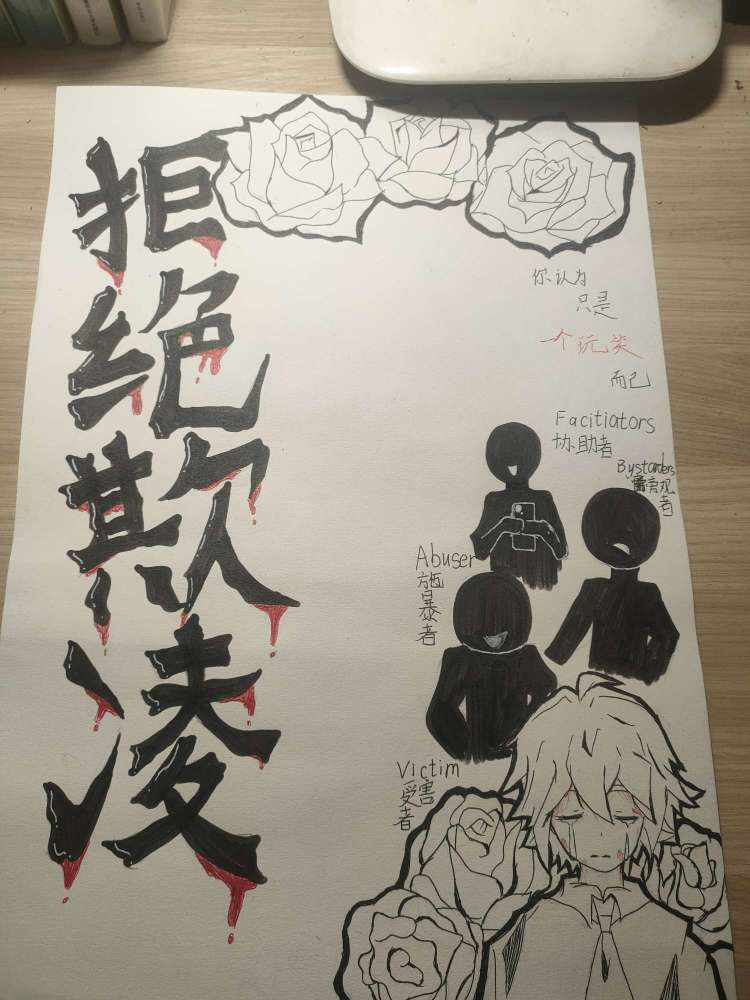 拒绝欺凌
你认为
只是
个玩笑
而已
Facitiators
协助者
Bystanders
旁观者
Abuser
施暴者
Victim
受害者